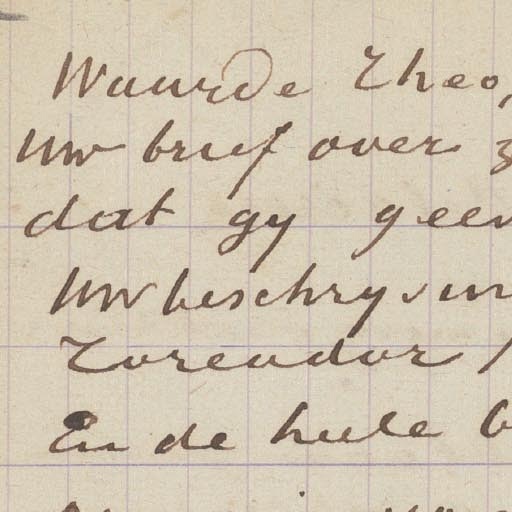 Waarde Theo,
Uw brief over
dat gy geen
Uw beschryvin
Toreador
En de heele